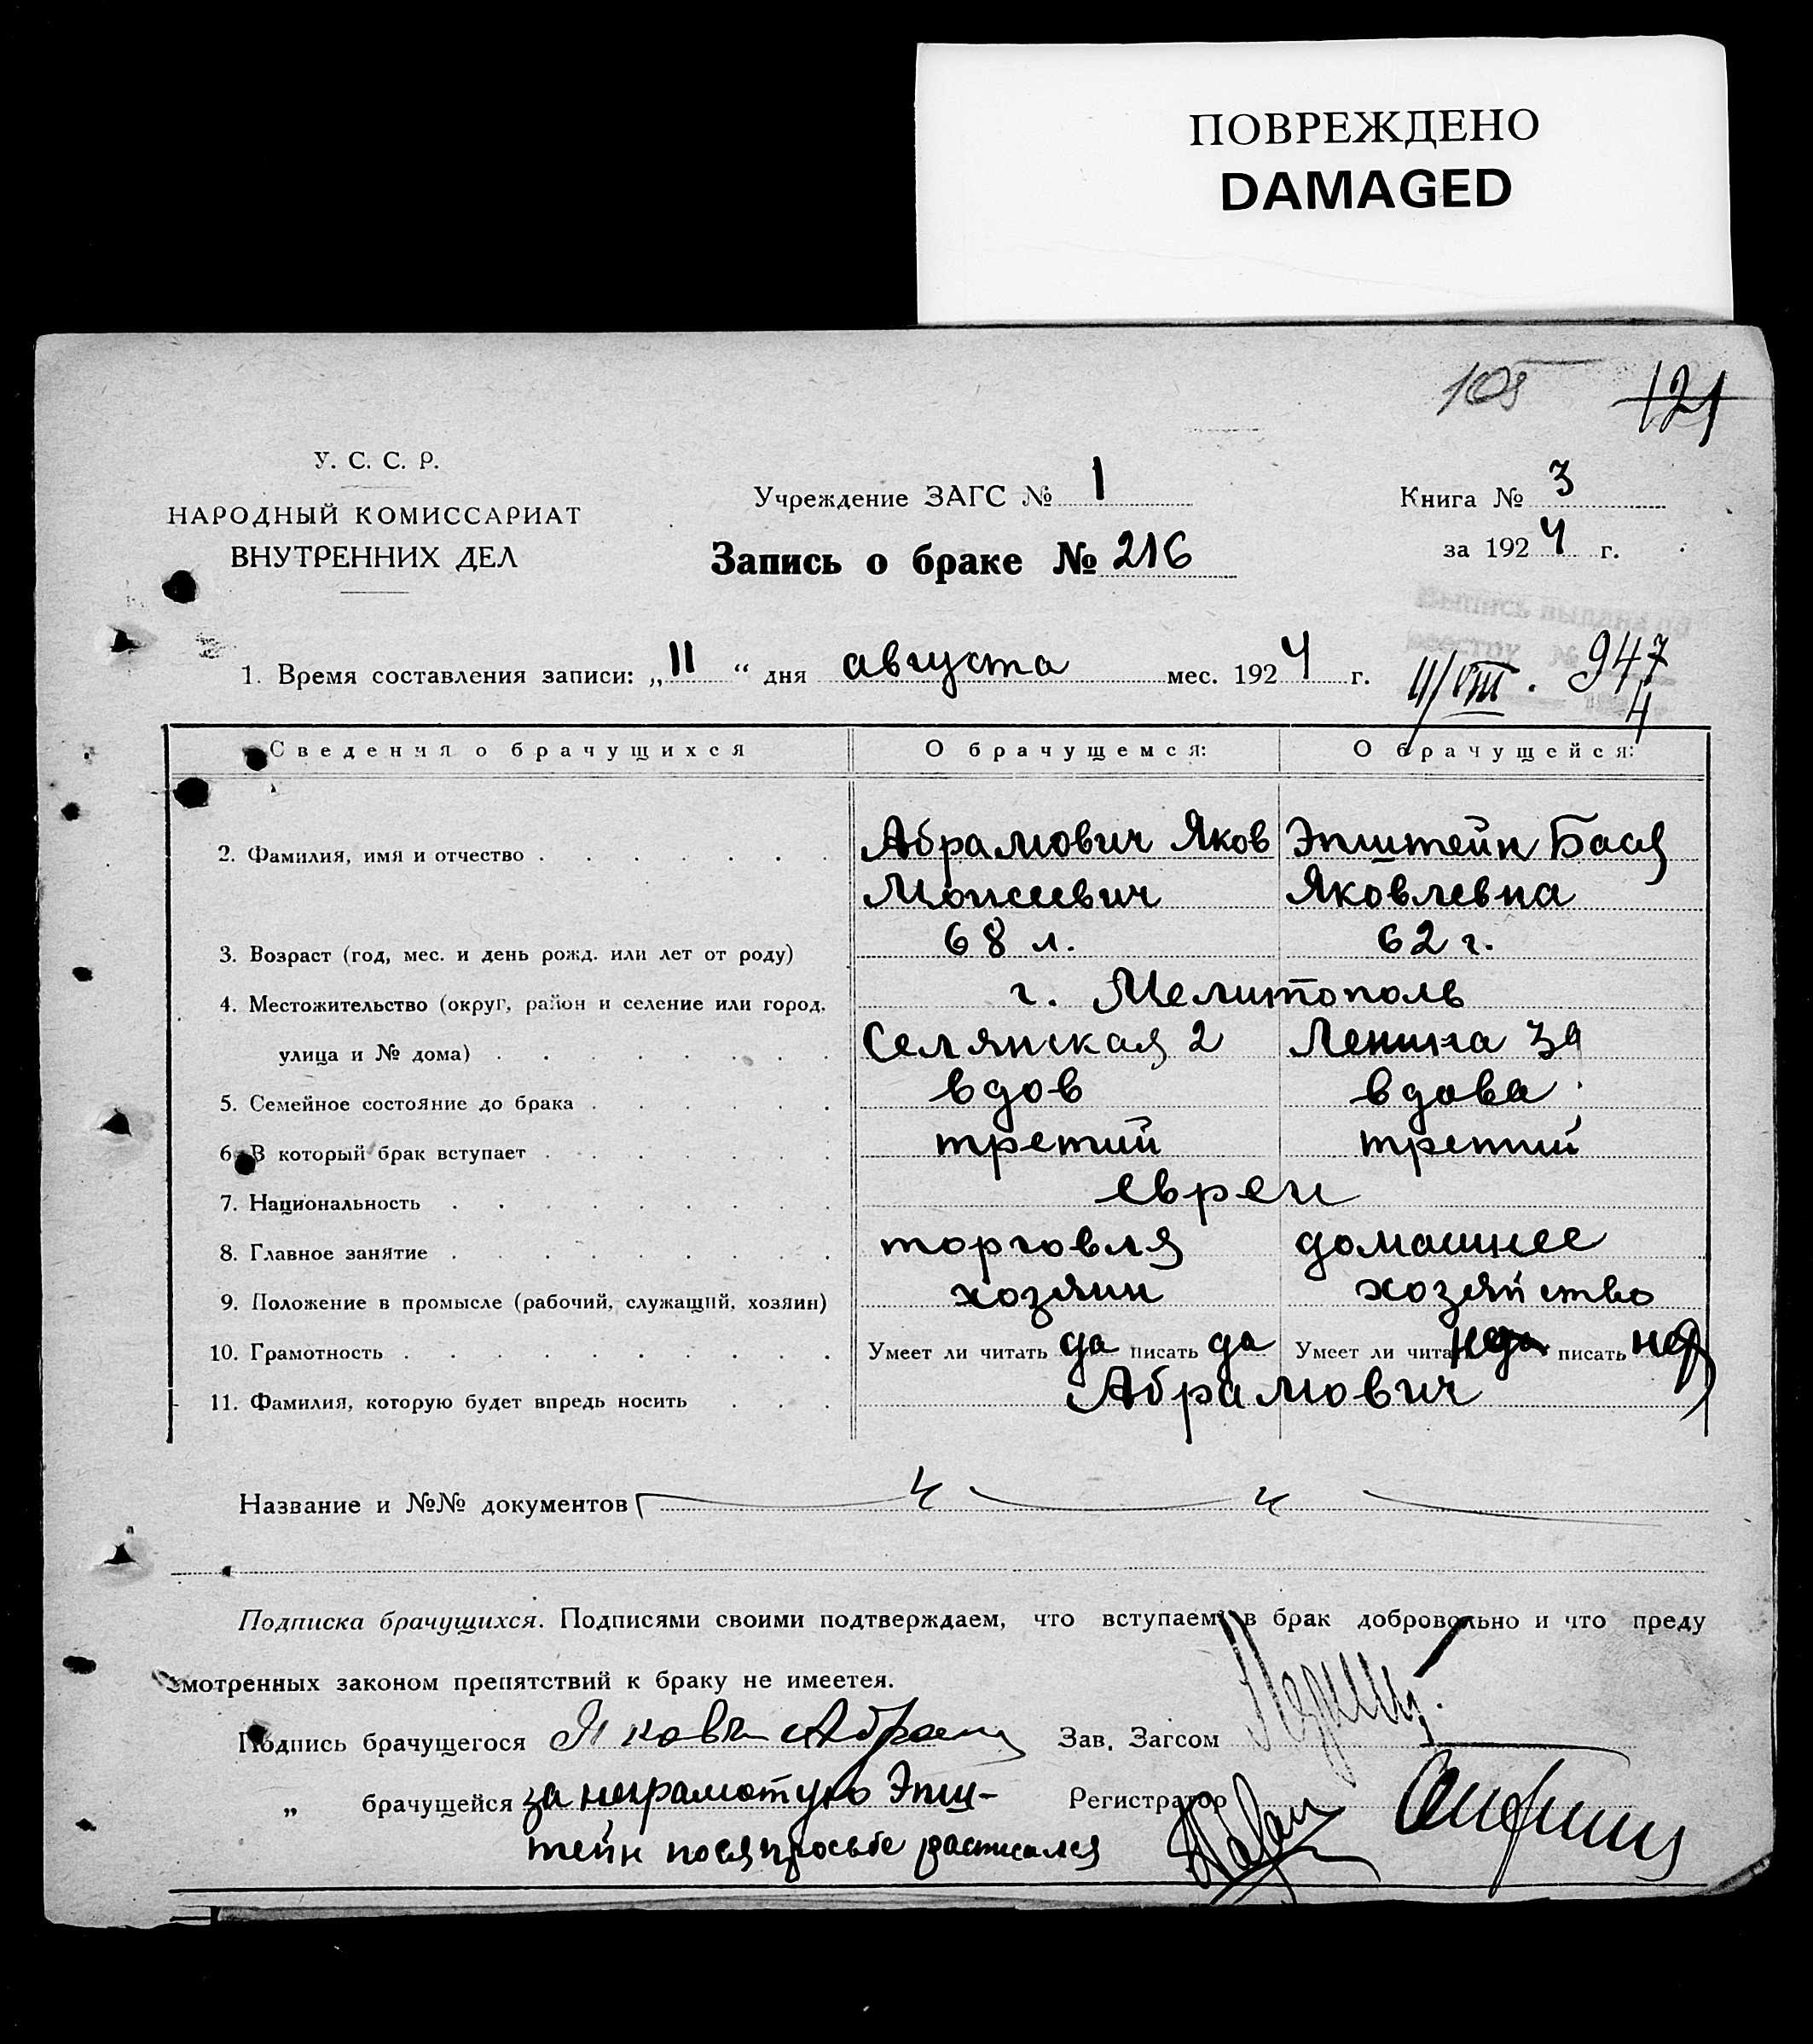 ПОВРЕЖДЕНО
DAMAGED
105 121
У. С. С. Р.
НАРОДНЫЙ КОМИССАРИАТ
ВНУТРЕННИХ ДЕЛ
Учреждение ЗАГС № 1
Запись о браке № 216
Книга № 3
за 1924 г.
Выпись выдана по
реестру № 947
11/VIII. 4
1. Время составления записи: „11“ дня августа мес. 1924 г.
Сведения о брачущихся О брачущемся: О брачущейся:
2. Фамилия, имя и отчество Абрамович Яков Эпштейн Бася
Моисеевич Яковлевна
3. Возраст (год, мес. и день рожд. или лет от роду) 68 л. 62 г.
4. Местожительство (округ, район и селение или город, г. Мелитополь
улица и № дома) Селянская 2 Ленина 39
5. Семейное состояние до брака вдов вдова
6. В который брак вступает третий третий
7. Национальность евреи
8. Главное занятие торговля домашнее
9. Положение в промысле (рабочий, служащий, хозяин) хозяин хозяйство
10. Грамотность Умеет ли читать да писать да Умеет ли чита писать
11. Фамилия, которую будет впредь носить Абрамович
Название и №№ документов
Подписка брачущихся. Подписями своими подтверждаем, что вступаем в брак добровольно и что преду
смотренных законом препятствий к браку не имеетея.
Подпись брачущегося Яковъ Абрам Зав. Загсом
„ брачущейся за неграмотную Эпш- Регистратор
тейн по ея просьбе расписался